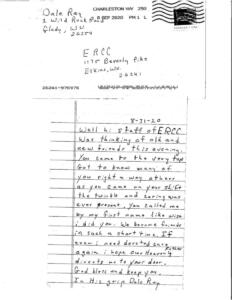 Dale Ray
2 Wild Rock Road
Glady, WV
26254
CHARLESTON WV 250
SEP 2020 PM 1 L
ERCC
1175 Beverly Pike
Elkins, WV.
26241
8-31-20
Well hi staff of ERCC
Was thinking of old and
new friends this evening.
You came to the very top
Got to know many of
you right a way others
as you came on your shift
the twinkle and caring was
ever present, you called me
by my first name like wise
i did you. We became friends
in such a short time. If
ever i need doctored
again i hope our Heavenly Father
directs me to your door.
God bless and keep you.
In His grip Dale Ray